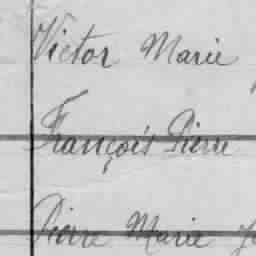 Victor Marie
François Pierre
Pierre Marie